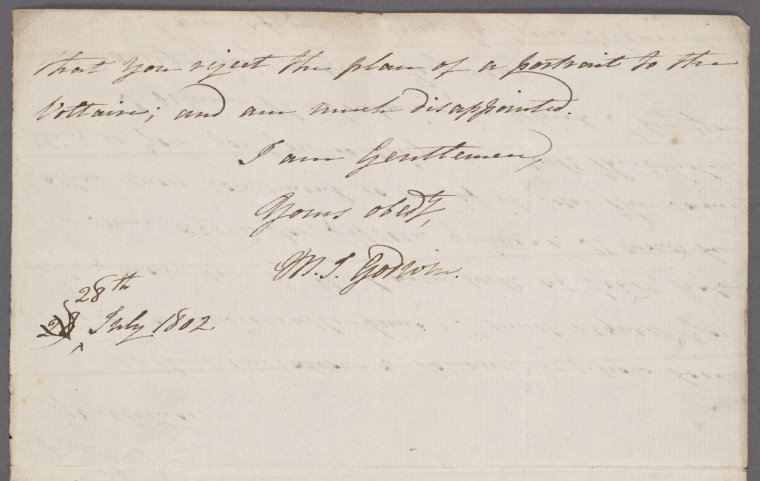 that you reject the plan of a portrait to the
Voltaire; and am much disappointed.
I am Gentlemen,
Yours obedt,
M. J. Godwin.
28th
28 ‸ July 1802